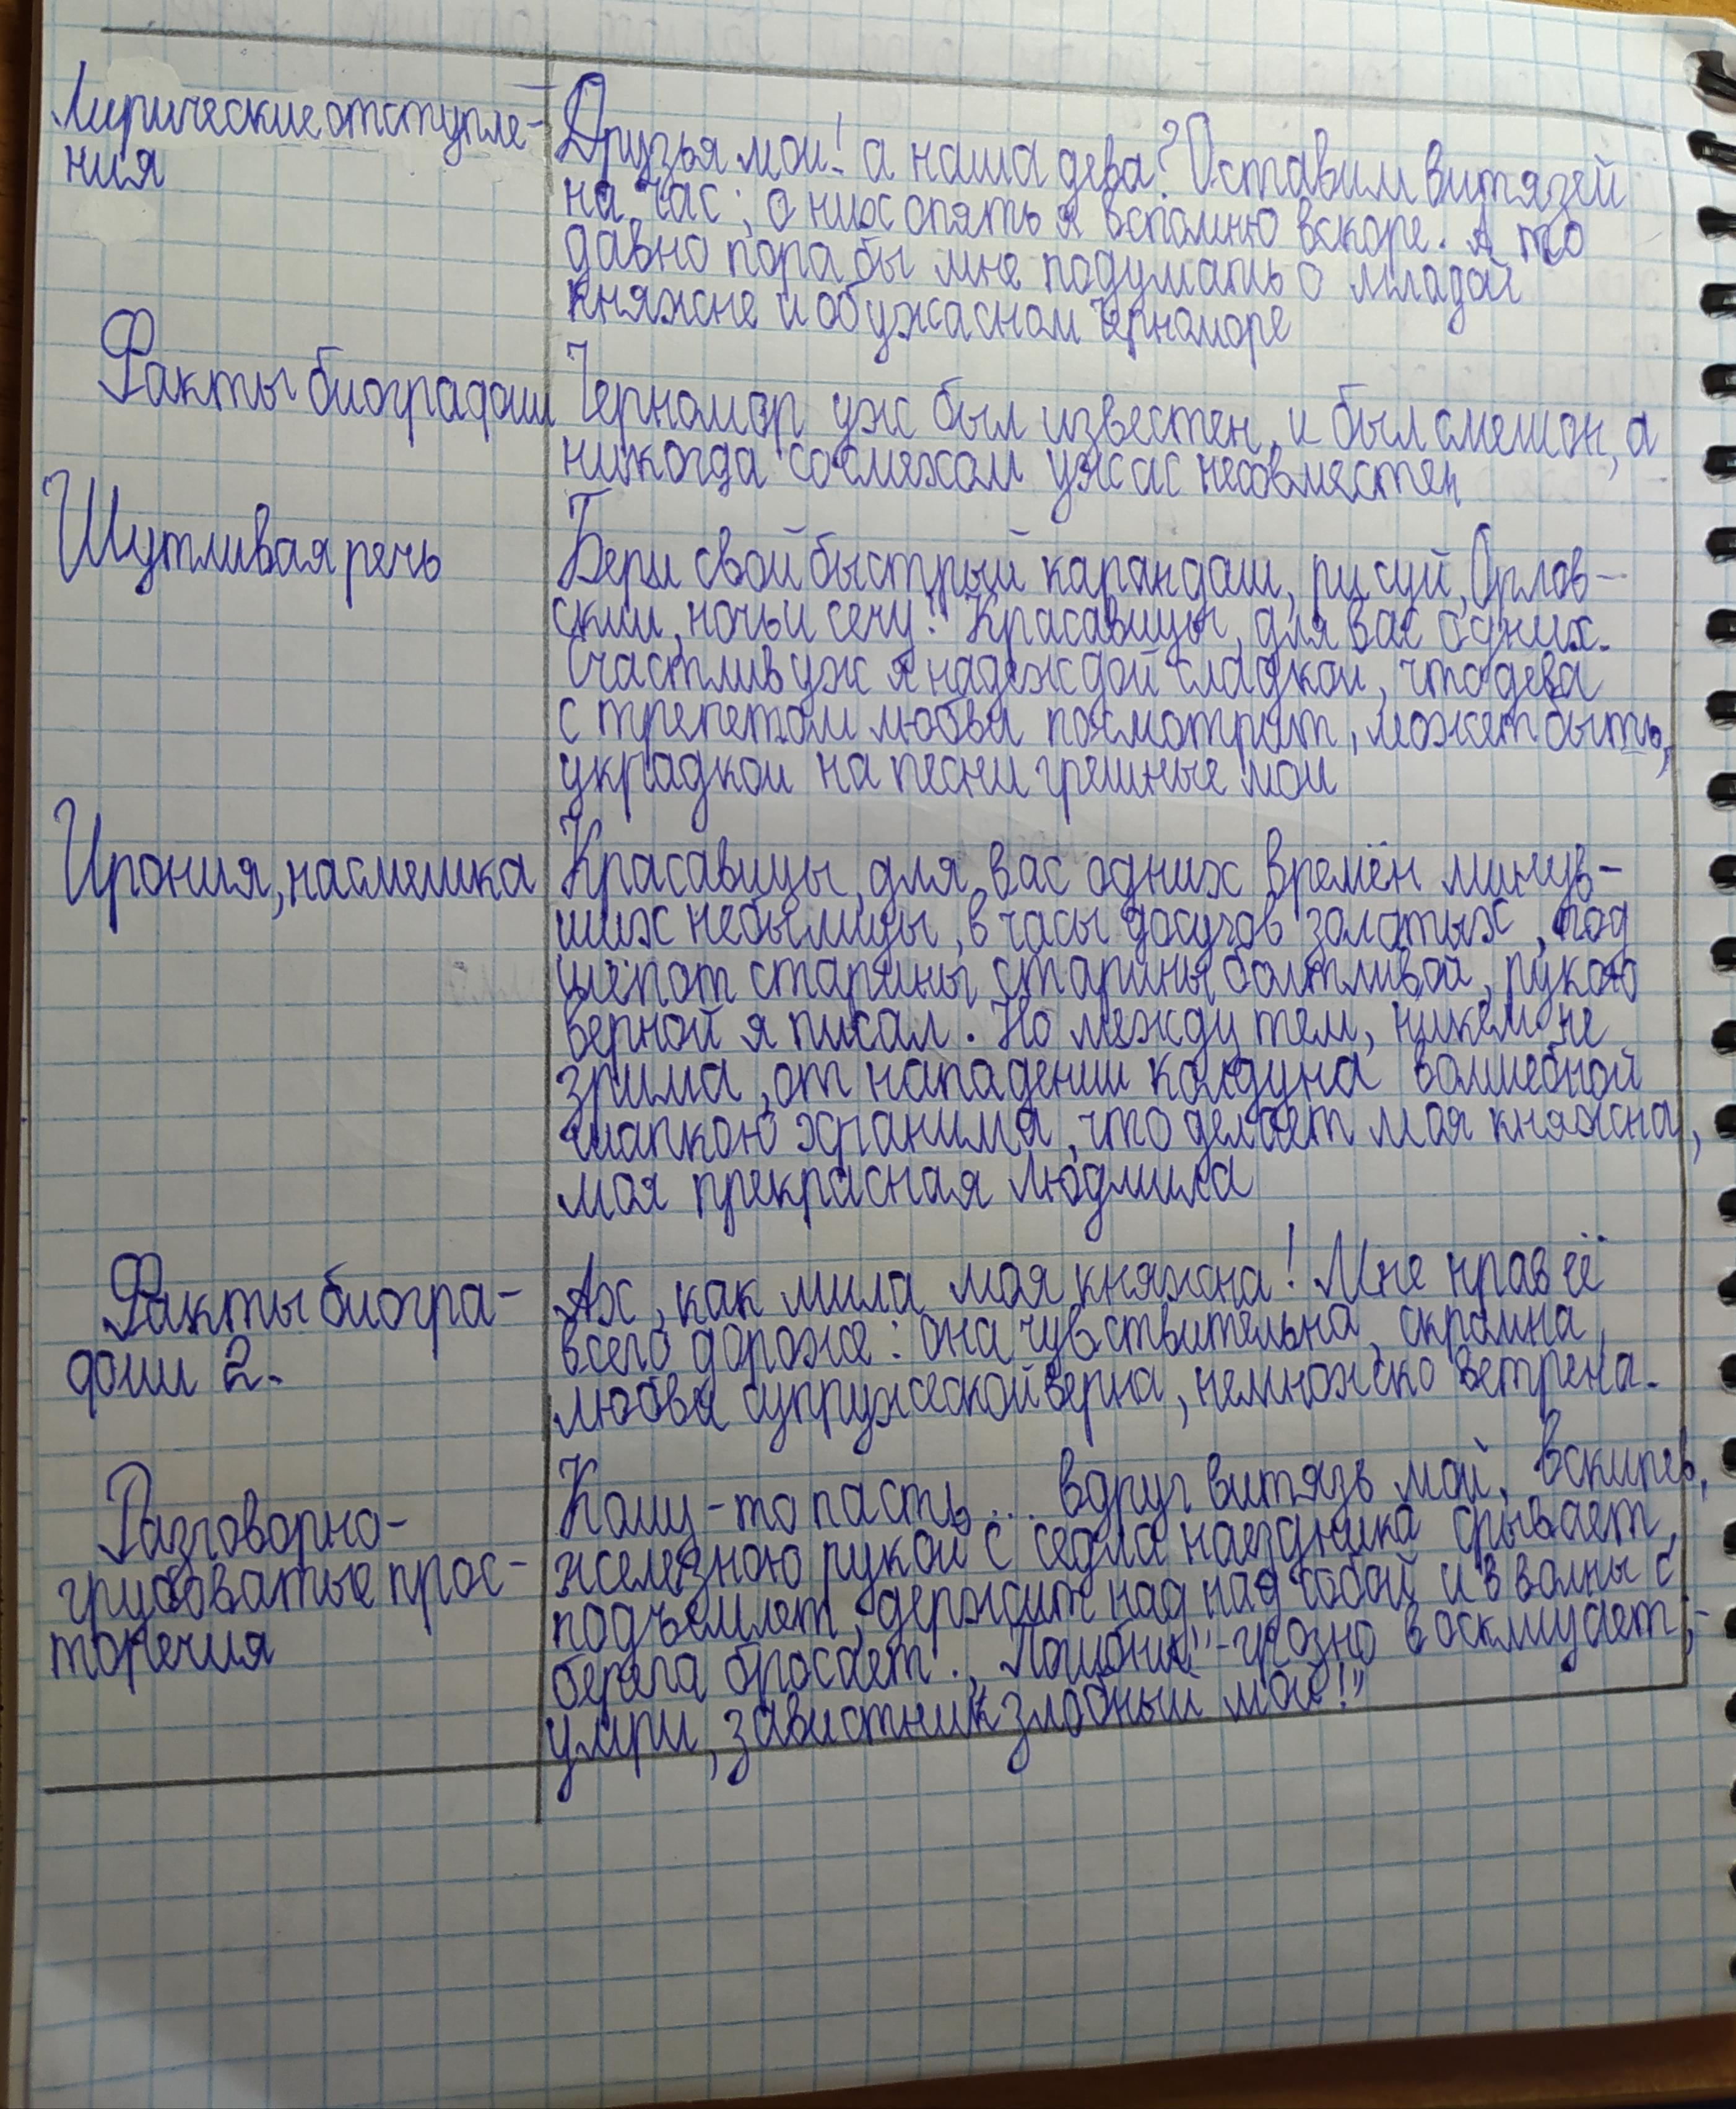 Лирические отступле-
ния
Друзья мои! а наша дева? Оставим витязей
на час; о них опять я вспомню вскоре. А то
давно пора бы мне подумать о младой
княжне и об ужасном Черноморе
Факты биографии
Черномор уж был известен, и был смешон, а
никогда со смехом ужас несовместен
Шутливая речь
Бери свой быстрый карандаш, рисуй, Орлов-
ский, ночь и сечу! Красавицы, для вас одних.
Счастлив уж я надеждой сладкой, что дева
с трепетом любви посмотрит, может быть,
украдкой на песни грешные мои
Ирония, насмешка
Красавицы, для вас одних времён минув-
ших небылицы, в часы досугов золотых, под
шёпот старины старины болтливой, рукою
верной я писал. Но между тем, никем не
зрима, от нападений колдуна волшебной
шапкою хранима, что делает моя княжна,
моя прекрасная Людмила
Факты биогра-
фии 2.
Ах, как мила моя княжна! Мне нрав её
всего дороже: она чувствительна, скромна,
любви супружеской верна, немножко ветрена.
Разговорно-
грубоватые прос-
торечия
Кому-то пасть... вдруг витязь мой, вскипев,
железною рукой с седла наездника срывает,
подъемлет, держит над над собой и в волны с
берега бросает. „Погибни!"-грозно восклицает;-
умри, завистник злобный мой!"